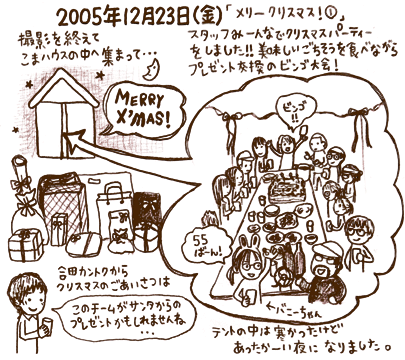 2005年12月23日(金)「メリークリスマス!①」
撮影を終えて
こまハウスの中へ集まって・・・
スタッフみーんなでクリスマスパーティー
をしました!!美味しいごちそうを食べながら
プレゼント交換のビンゴ大会!
MERRY
X'MAS!
ビンゴ!!
55
ばーん!
合田カントクから
クリスマスのごあいさつは
このチームがサンタからの
プレゼントかもしれませんね
・・・
バニーちゃん
テントの中は寒かったけど
あったかーい夜になりました。